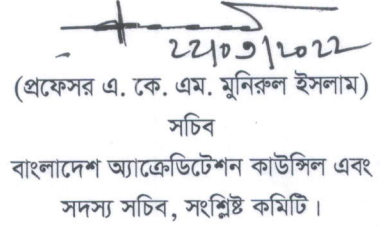 ২২/০৩/২০২২
(প্রফেসর এ. কে. এম. মুনিরুল ইসলাম)
সচিব
বাংলাদেশ অ্যাক্রেডিটেশন কাউন্সিল এবং
সদস্য সচিব, সংশ্লিষ্ট কমিটি।